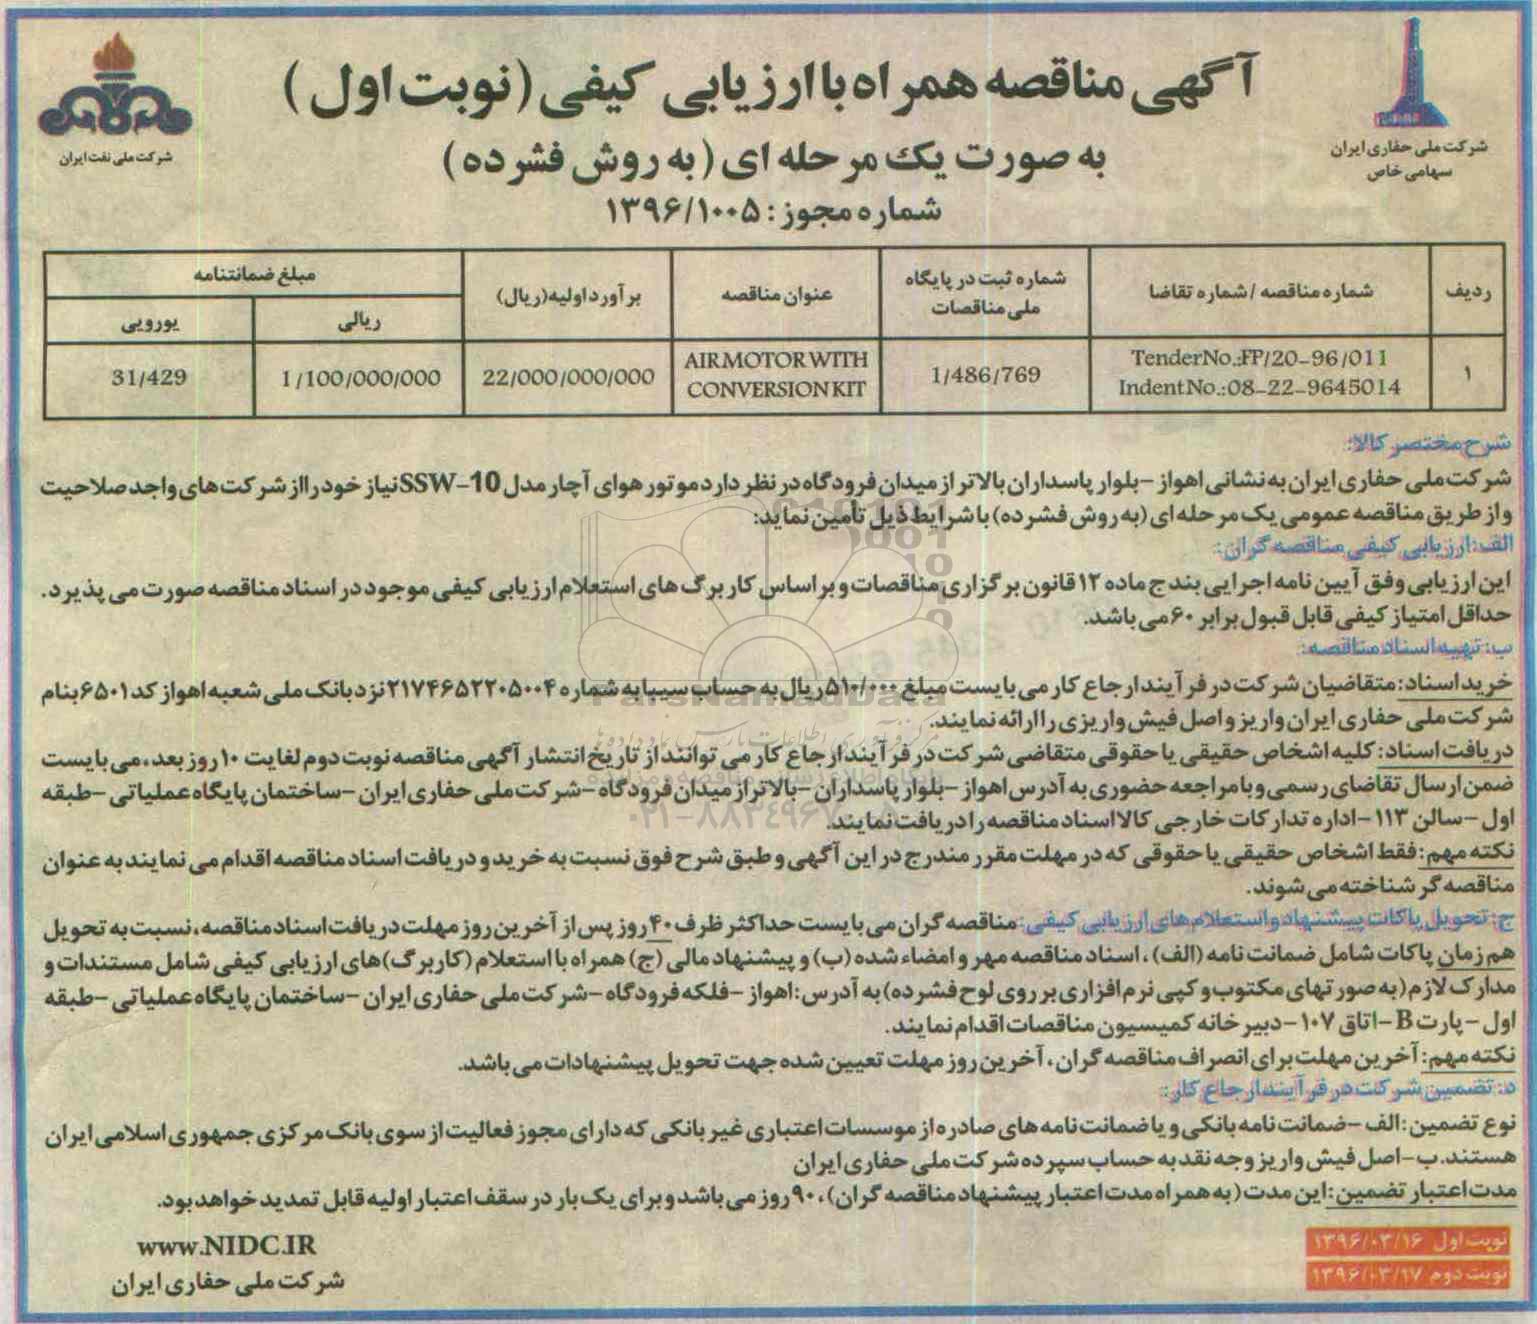 آگهی مناقصه همراه با ارزیابی کیفی (نوبت اول)
به صورت یک مرحله ای (به روش فشرده)
شماره مجوز: ۱۳۹۶/۱۰۰۵
شرکت ملی حفاری ایران
سهامی خاص
شرکت ملی نفت ایران
ردیف
شماره مناقصه / شماره تقاضا
شماره ثبت در پایگاه
ملی مناقصات
عنوان مناقصه
برآورد اولیه(ریال)
مبلغ ضمانتنامه
ریالی
یورویی
۱
TenderNo.:FP/20-96/011
IndentNo.:08-22-9645014
1/486/769
AIRMOTOR WITH
CONVERSION KIT
22/000/000/000
1/100/000/000
31/429
شرح مختصر کالا:
شرکت ملی حفاری ایران به نشانی اهواز - بلوار پاسداران بالاتر از میدان فرودگاه در نظر دارد موتور هوای آچار مدل SSW-10 نیاز خود را از شرکت های واجد صلاحیت
و از طریق مناقصه عمومی یک مرحله ای (به روش فشرده) با شرایط ذیل تأمین نماید:
الف: ارزیابی کیفی مناقصه گران:
این ارزیابی وفق آیین نامه اجرایی بند ج ماده ۱۲ قانون برگزاری مناقصات و بر اساس کاربرگ های استعلام ارزیابی کیفی موجود در اسناد مناقصه صورت می پذیرد.
حداقل امتیاز کیفی قابل قبول برابر ۶۰ می باشد.
ب: تهیه اسناد مناقصه:
خرید اسناد: متقاضیان شرکت در فرآیند ارجاع کار می بایست مبلغ ۵۱۰/۰۰۰ ریال به حساب سیبا به شماره ۲۱۷۴۶۵۲۲۰۵۰۰۴ نزد بانک ملی شعبه اهواز کد ۶۵۰۱ بنام
شرکت ملی حفاری ایران واریز و اصل فیش واریزی را ارائه نمایند.
دریافت اسناد: کلیه اشخاص حقیقی یا حقوقی متقاضی شرکت در فرآیند ارجاع کار می توانند از تاریخ انتشار آگهی مناقصه نوبت دوم لغایت ۱۰ روز بعد، می بایست
ضمن ارسال تقاضای رسمی و با مراجعه حضوری به آدرس اهواز - بلوار پاسداران - بالاتر از میدان فرودگاه - شرکت ملی حفاری ایران - ساختمان پایگاه عملیاتی - طبقه
اول - سالن ۱۱۳ - اداره تدارکات خارجی کالا اسناد مناقصه را دریافت نمایند.
نکته مهم: فقط اشخاص حقیقی یا حقوقی که در مهلت مقرر مندرج در این آگهی و طبق شرح فوق نسبت به خرید و دریافت اسناد مناقصه اقدام می نمایند به عنوان
مناقصه گر شناخته می شوند.
ج: تحویل پاکات پیشنهاد و استعلام های ارزیابی کیفی: مناقصه گران می بایست حداکثر ظرف ۴۰ روز پس از آخرین روز مهلت دریافت اسناد مناقصه، نسبت به تحویل
هم زمان پاکات شامل ضمانت نامه (الف)، اسناد مناقصه مهر و امضاء شده (ب) و پیشنهاد مالی (ج) همراه با استعلام (کاربرگ) های ارزیابی کیفی شامل مستندات و
مدارک لازم (به صورتهای مکتوب و کپی نرم افزاری بر روی لوح فشرده) به آدرس: اهواز - فلکه فرودگاه - شرکت ملی حفاری ایران - ساختمان پایگاه عملیاتی - طبقه
اول - پارت B - اتاق ۱۰۷ - دبیرخانه کمیسیون مناقصات اقدام نمایند.
نکته مهم: آخرین مهلت برای انصراف مناقصه گران، آخرین روز مهلت تعیین شده جهت تحویل پیشنهادات می باشد.
د: تضمین شرکت در فرآیند ارجاع کار:
نوع تضمین: الف - ضمانت نامه بانکی و یا ضمانت نامه های صادره از موسسات اعتباری غیر بانکی که دارای مجوز فعالیت از سوی بانک مرکزی جمهوری اسلامی ایران
هستند. ب - اصل فیش واریز وجه نقد به حساب سپرده شرکت ملی حفاری ایران
مدت اعتبار تضمین: این مدت (به همراه مدت اعتبار پیشنهاد مناقصه گران)، ۹۰ روز می باشد و برای یک بار در سقف اعتبار اولیه قابل تمدید خواهد بود.
نوبت اول ۱۳۹۶/۰۳/۱۶
نوبت دوم ۱۳۹۶/۰۳/۱۷
www.NIDC.IR
شرکت ملی حفاری ایران
ParsNamadData